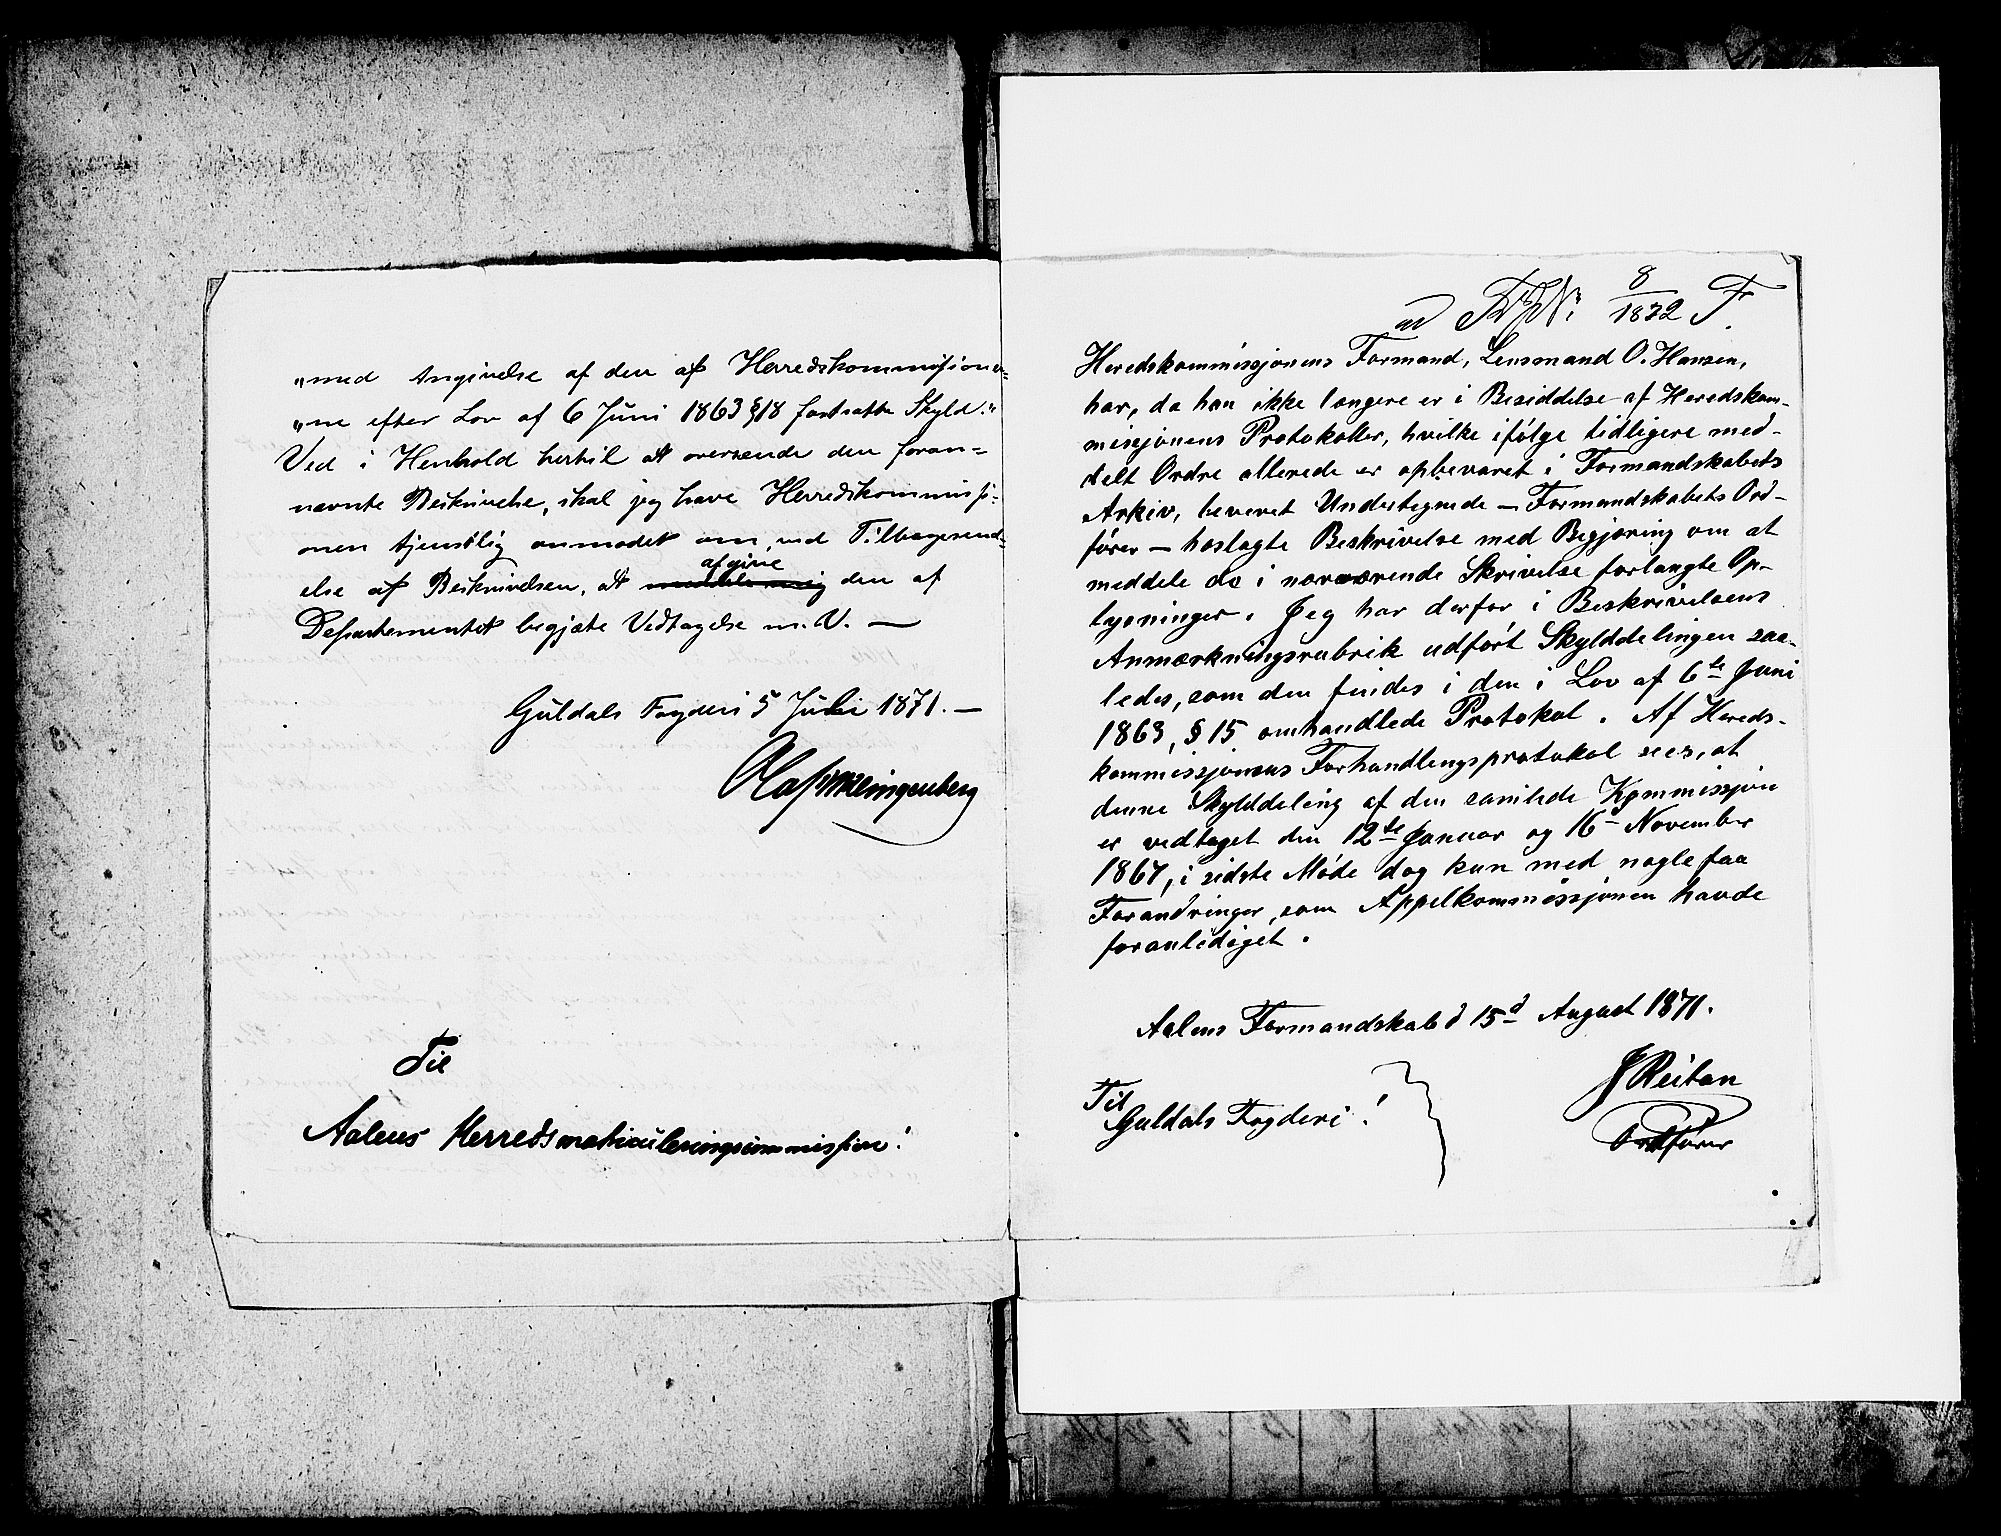 „med Angivelse af den af Herredskommissione-
„ne efter Lov af 6 Juni 1863 §18 fastsatte Skyld."
Ved i Henhold hertil at oversende den foran=
nævnte Beskrivelse, skal jeg have Herredskommissi-
onen tjenstlig anmodet om, ved Tilbagesend-
afgive
else af Beskrivelsen, at meddele mig den af
Departementet begjærte Vedtagelse m. V. —
Guldals Fogderi 5 Juli 1871. —
Til
Aalens Herredsmatriculeringscommission!
ad 8/1872 F.
Heredskommissjonens Formand, Lensmand O. Hansen,
har, da han ikke længere er i Besiddelse af Heredskom-
missjonens Protokoller, hvilke ifølge tidligere med-
delt Ordre allerede er opbevaret i Formandskabets
Arkiv, leveret Undertegnede — Formandskabets Ord-
fører — hoslagte Beskrivelse med Begjæring om at
meddele de i nærværende Skrivelse forlangte Op-
lysninger. Jeg har derfor i Beskrivelsens
Anmærkningsrubrik udført Skylddelingen saa-
ledes, som den findes i den i Lov af 6te Juni
1863, § 15 omhandlede Protokol. Af Hereds-
kommissjonens Forhandlingsprotokol sees, at
denne Skylddeling af den samlede Kommissjon
er vedtaget den 12te Januar og 16- November
1867, i sidste Møde dog kun med nogle faa
Forandringer, som Appelkommissjonen havde
foranlediget.
Aalens Formandskab d 15d August 1871.
J Reitan
Ordfører
Til
Guldals Fogderi!